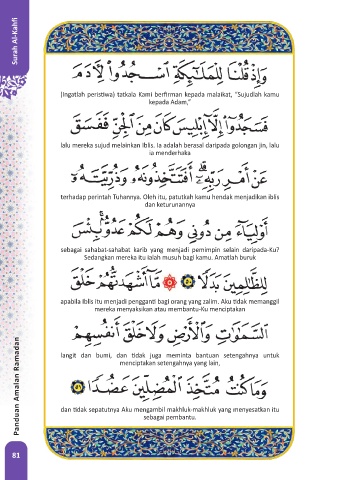 Surah Al-Kahfi
وَإِذْ قُلْنَا لِلْمَلَٰٓئِكَةِ ٱسْجُدُوا۟ لِأٓدَمَ
(Ingatlah peristiwa) tatkala Kami berfirman kepada malaikat, "Sujudlah kamu
kepada Adam,"
فَسَجَدُوٓا۟ إِلَّآ إِبْلِيسَ كَانَ مِنَ ٱلْجِنِّ فَفَسَقَ
lalu mereka sujud melainkan Iblis. Ia adalah berasal daripada golongan jin, lalu
ia menderhaka
عَنْ أَمْرِ رَبِّهِۦٓ ۗ أَفَتَتَّخِذُونَهُۥ وَذُرِّيَّتَهُۥٓ
terhadap perintah Tuhannya. Oleh itu, patutkah kamu hendak menjadikan iblis
dan keturunannya
أَوْلِيَآءَ مِن دُونِى وَهُمْ لَكُمْ عَدُوٌّۢ ۚ بِئْسَ
sebagai sahabat-sahabat karib yang menjadi pemimpin selain daripada-Ku?
Sedangkan mereka itu ialah musuh bagi kamu. Amatlah buruk
لِلظَّٰلِمِينَ بَدَلًا ٥٠ ۞ مَّآ أَشْهَدتُّهُمْ خَلْقَ
apabila Iblis itu menjadi pengganti bagi orang yang zalim. Aku tidak memanggil
mereka menyaksikan atau membantu-Ku menciptakan
ٱلسَّمَٰوَٰتِ وَٱلْأَرْضِ وَلَا خَلْقَ أَنفُسِهِمْ
langit dan bumi, dan tidak juga meminta bantuan setengahnya untuk
menciptakan setengahnya yang lain,
وَمَا كُنتُ مُتَّخِذَ ٱلْمُضِلِّينَ عَضُدًا ٥١
dan tidak sepatutnya Aku mengambil makhluk-makhluk yang menyesatkan itu
sebagai pembantu.
Panduan Amalan Ramadan
81